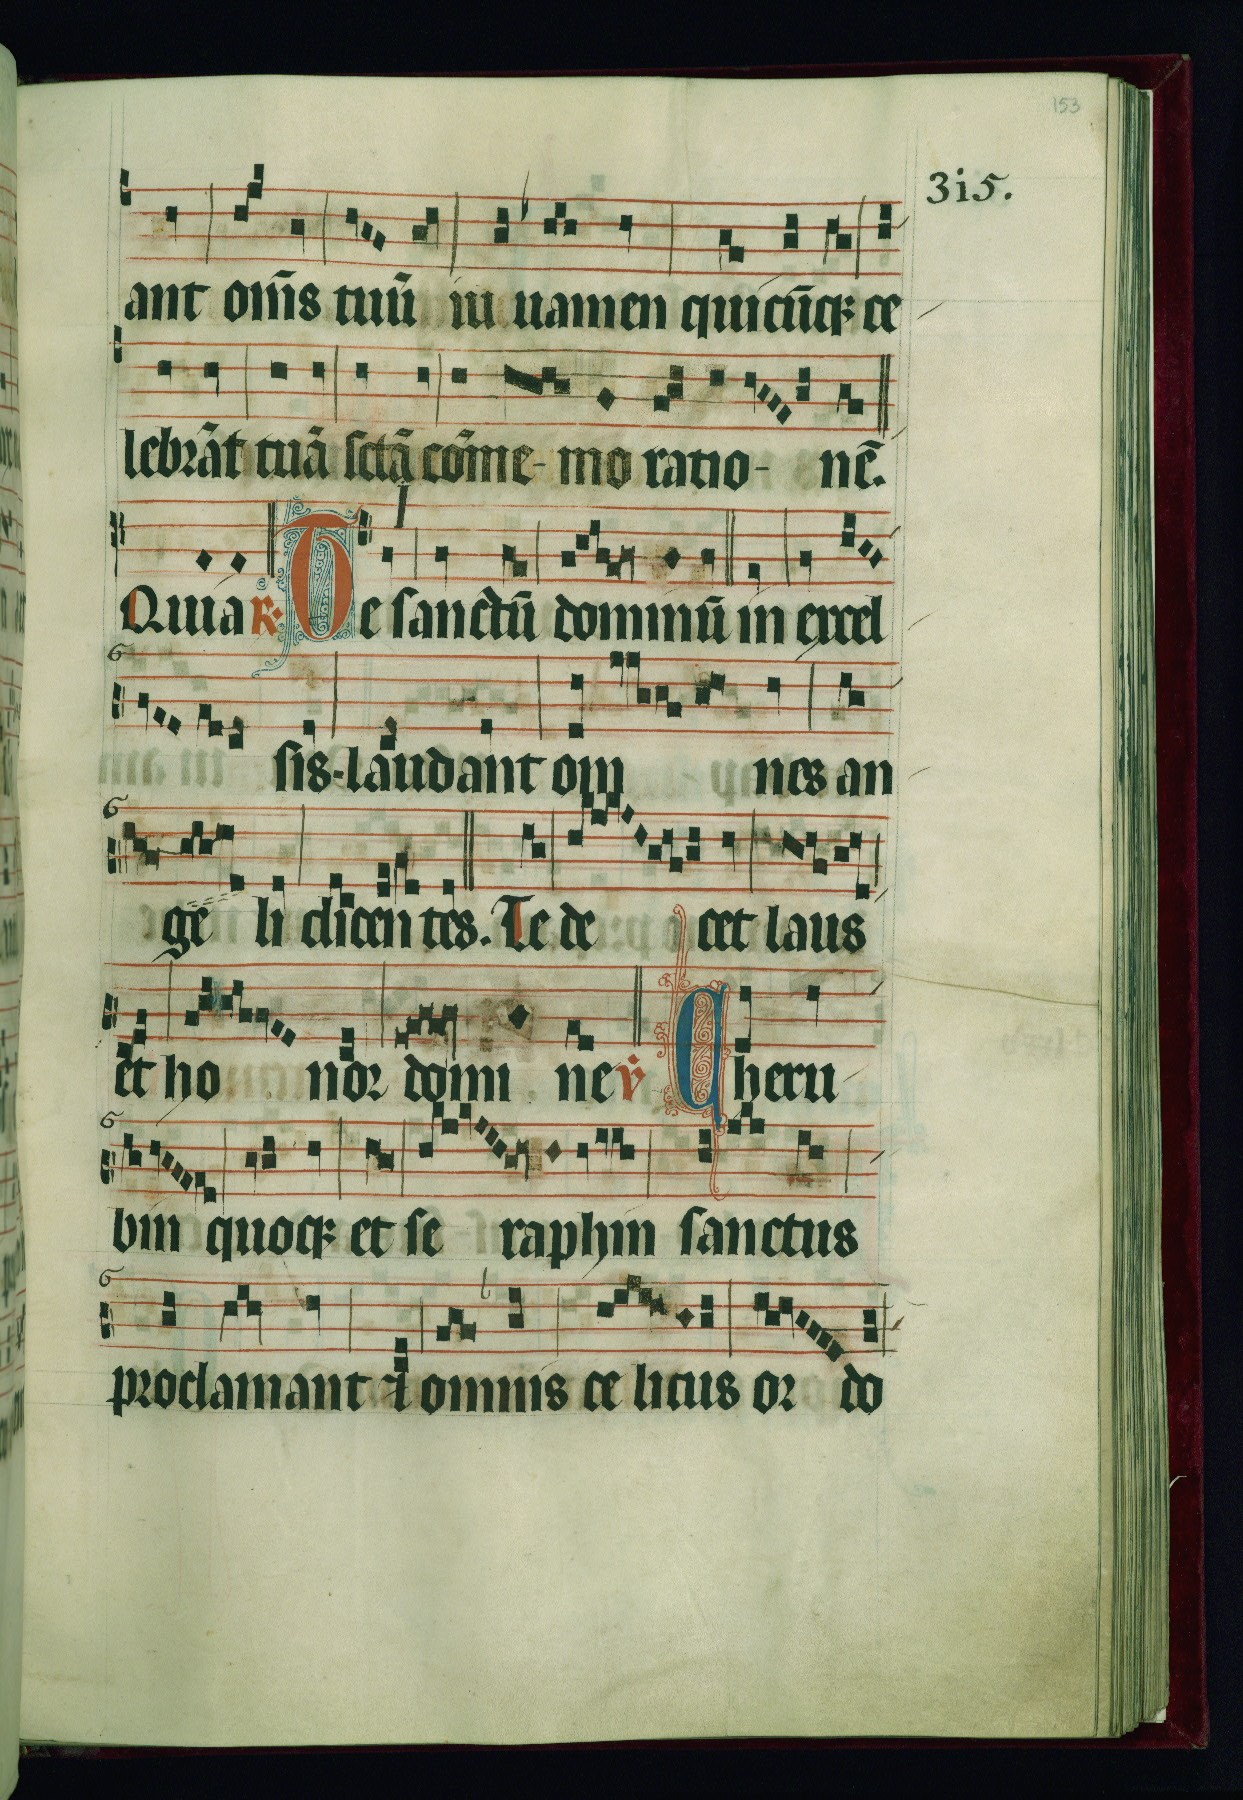 153
3i5.
ant om̄s tuū iu uamen quicūqꝫ ce
lebrāt tuā sctā cōme- mo ratio- nē.
Quia ℟. Te sanctū dominū in excel
sis-laudant om nes an
ge li dicen tes. Te de cet laus
et ho nor domi ne ℣ Cheru
bin quoqꝫ et se raphin sanctus
proclamant ⁊ omnis ce licus or do